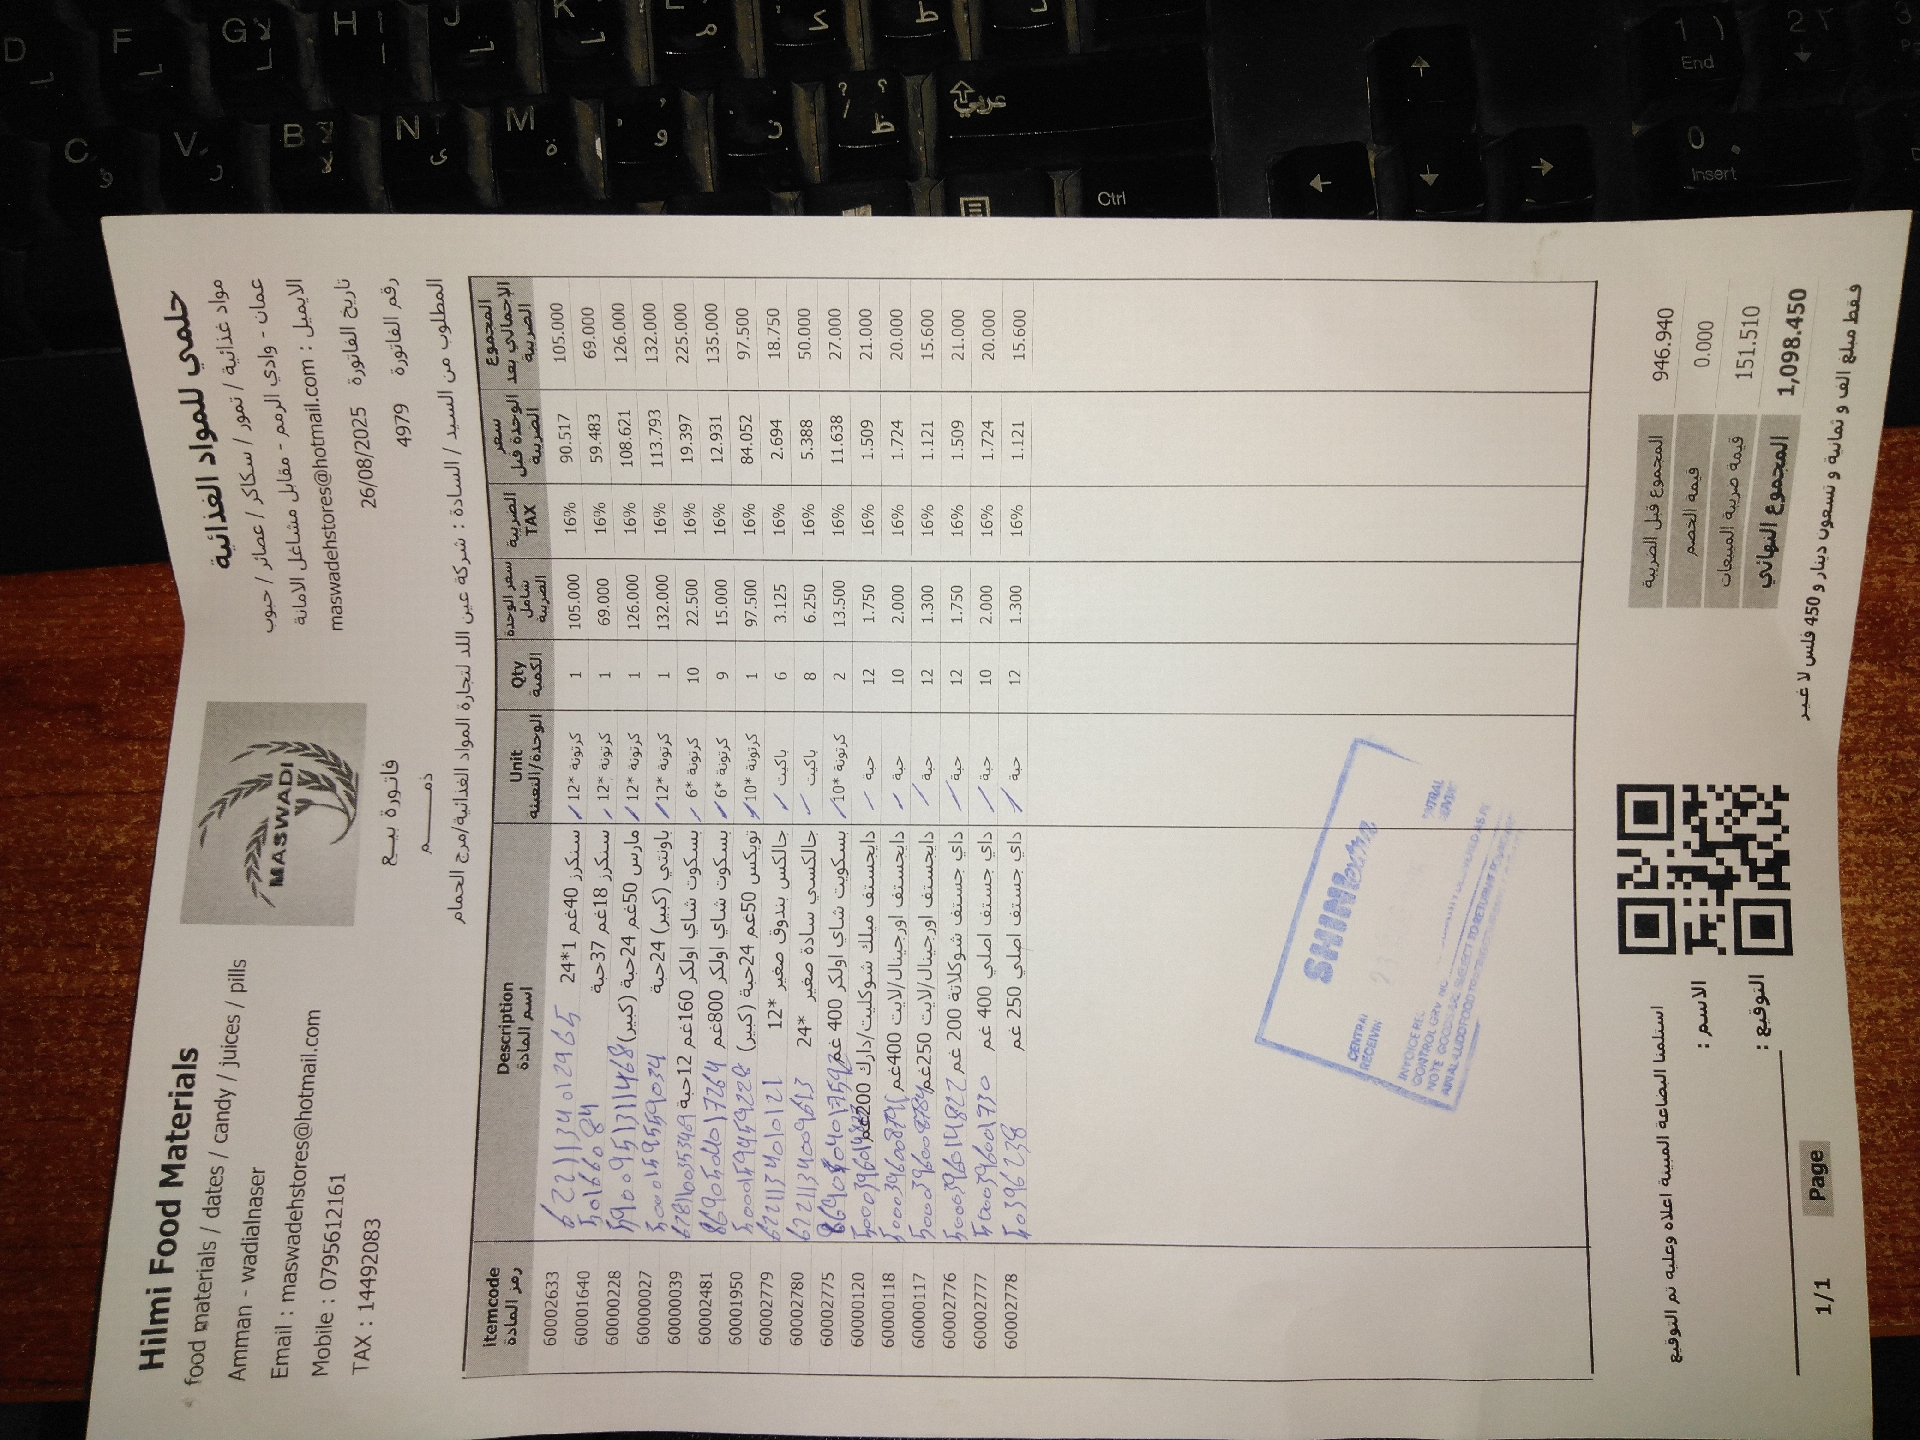 Hilmi Food Materials
food materials / dates / candy / juices / pills
Amman - wadialnaser
Email : maswadehstores@hotmail.com
Mobile : 0795612161
TAX : 14492083
MASWADI
فاتورة بيع
ذمم
حلمي للمواد الغذائية
مواد غذائية / تمور / سكاكر / عصائر / حبوب
عمان - وادي الرمم - مقابل مشاغل الامانة
الايميل : maswadehstores@hotmail.com
تاريخ الفاتورة 26/08/2025
رقم الفاتورة 4979
المطلوب من السيد / السادة : شركة عين اللد لتجارة المواد الغذائية/مرج الحمام
itemcode رمز المادة | Description اسم المادة | Unit الوحدة/التعبئة | Qty الكمية | سعر الوحدة شامل الضريبة | الضريبة TAX | سعر الوحدة قبل الضريبة | المجموع الإجمالي بعد الضريبة
60002633 | 6221134012965 سنكرز 40غم 1*24 | كرتونة *12 | 1 | 105.000 | 16% | 90.517 | 105.000
60001640 | سنكرز 18غم 37حبة | كرتونة *12 | 1 | 69.000 | 16% | 59.483 | 69.000
60000228 | 5900951311468 مارس 50غم 24حبة (كبير) | كرتونة *12 | 1 | 126.000 | 16% | 108.621 | 126.000
60000027 | 5000159559034 باونتي (كبير) 24حبة | كرتونة *12 | 1 | 132.000 | 16% | 113.793 | 132.000
60000039 | بسكوت شاي اولكر 160غم 12حبة | كرتونة *6 | 10 | 22.500 | 16% | 19.397 | 225.000
60002481 | 8690504017264 بسكوت شاي اولكر 800غم | كرتونة *6 | 9 | 15.000 | 16% | 12.931 | 135.000
60001950 | 5000159459228 تويكس 50غم 24حبة (كبير) | كرتونة *10 | 1 | 97.500 | 16% | 84.052 | 97.500
60002779 | جالكس بندوق صغير *12 | باكيت | 6 | 3.125 | 16% | 2.694 | 18.750
60002780 | 6221134009613 جالكسي سادة صغير *24 | باكيت | 8 | 6.250 | 16% | 5.388 | 50.000
60002775 | بسكويت شاي اولكر 400 غم | كرتونة *10 | 2 | 13.500 | 16% | 11.638 | 27.000
60000120 | دايجستف ميلك شوكليت/دارك 200غم | حبة | 12 | 1.750 | 16% | 1.509 | 21.000
60000118 | دايجستف اورجينال/لايت 400غم | حبة | 10 | 2.000 | 16% | 1.724 | 20.000
60000117 | دايجستف اورجينال/لايت 250غم | حبة | 12 | 1.300 | 16% | 1.121 | 15.600
60002776 | 5000396014822 داي جستف شوكلاتة 200 غم | حبة | 12 | 1.750 | 16% | 1.509 | 21.000
60002777 | 5000396001730 داي جستف اصلي 400 غم | حبة | 10 | 2.000 | 16% | 1.724 | 20.000
60002778 | داي جستف اصلي 250 غم | حبة | 12 | 1.300 | 16% | 1.121 | 15.600
CENTRAL
استلمنا البضاعة المبينة اعلاه وعليه تم التوقيع
الاسم :
التوقيع :
المجموع قبل الضريبة 946.940
قيمة الخصم 0.000
قيمة ضريبة المبيعات 151.510
المجموع النهائي 1,098.450
فقط مبلغ الف و ثمانية و تسعون دينار و 450 فلس لا غير
1/1 Page
D F G H J K
C V B N M
Ctrl
1 End
2
0 Insert